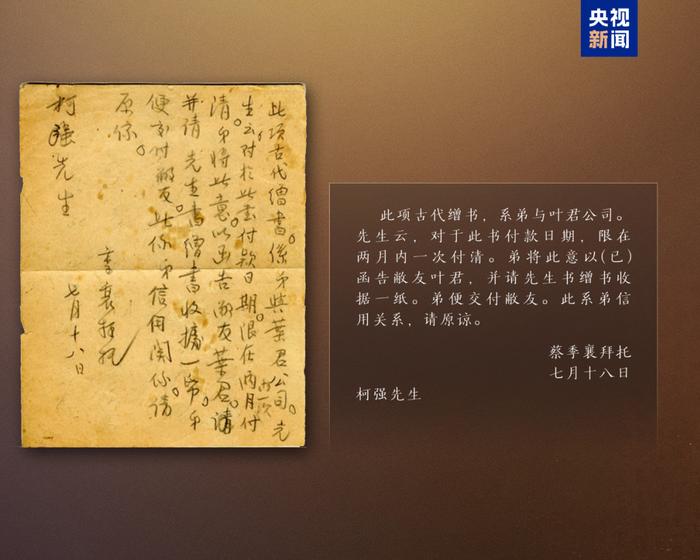 央视
新闻
此项古代繒書。係弟與葉君公司。先
生云对於此書付款日期。限在兩月内一次付
清。弟將此意以函告敝友葉君。请
并请 先生書繒書收據一帋。弟
便交付敝友。此係弟信用關係。请
原諒。
季襄拜托
七月十八日
柯强先生
此项古代缯书，系弟与叶君公司。
先生云，对于此书付款日期，限在
两月内一次付清。弟将此意以(已)
函告敝友叶君，并请先生书缯书收
据一纸。弟便交付敝友。此系弟信
用关系，请原谅。
蔡季襄拜托
七月十八日
柯强先生